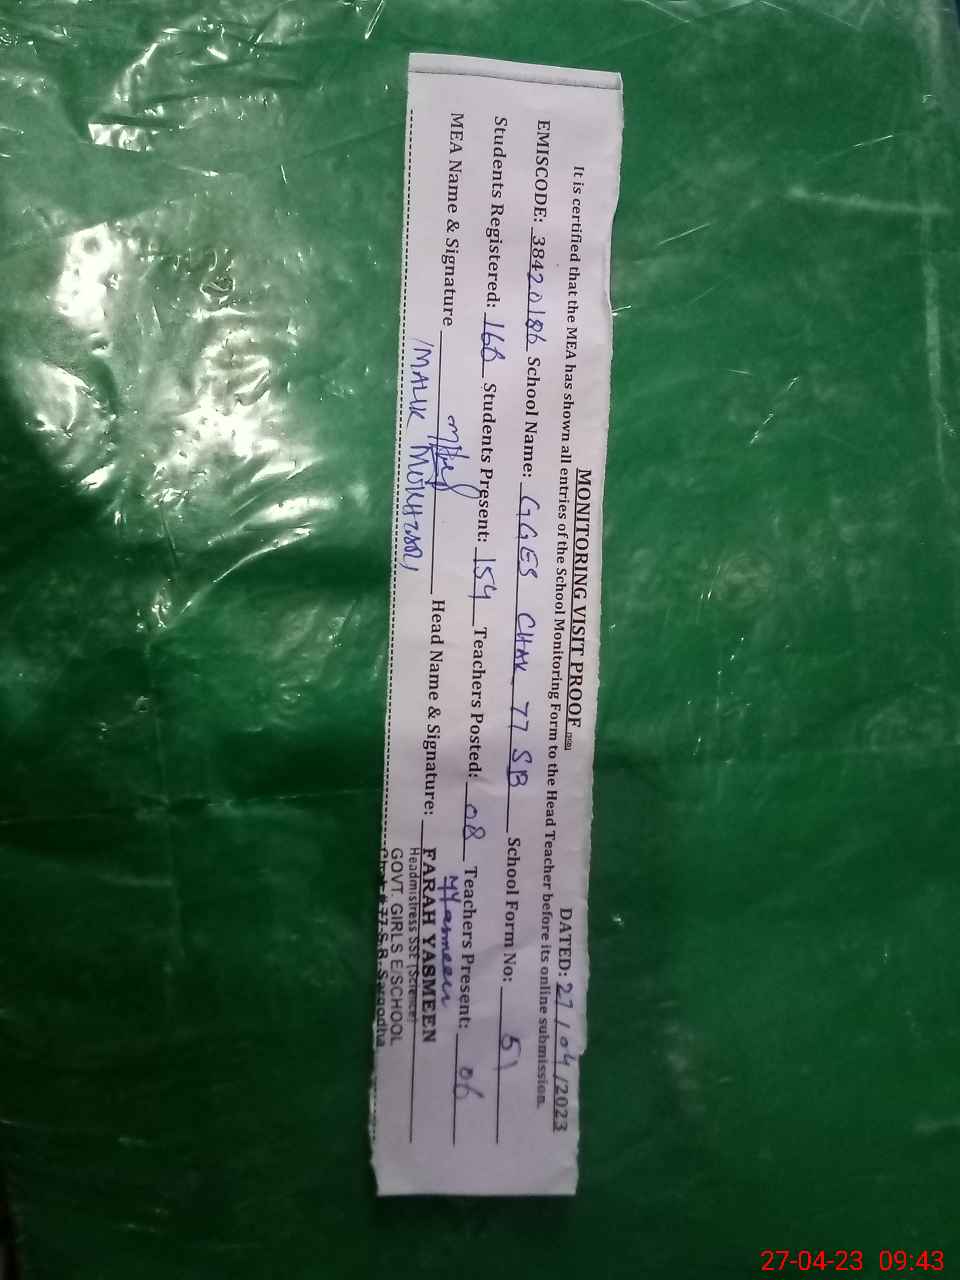 MONITORING VISIT PROOF
DATED: 27/04/2023
It is certified that the MEA has shown all entries of the School Monitoring Form to the Head Teacher before its online submission.
EMISCODE: 38420186 School Name: GGES CHAK 77 SB School Form No: 51
Students Registered: 168 Students Present: 154 Teachers Posted: 08 Teachers Present: 06
MEA Name & Signature Head Name & Signature:
MALIK
FARAH YASMEEN
Headmistress SSE (Science)
GOVT. GIRLS E/SCHOOL
Chak # 77 S.B. Sargodha
27-04-23 09:43